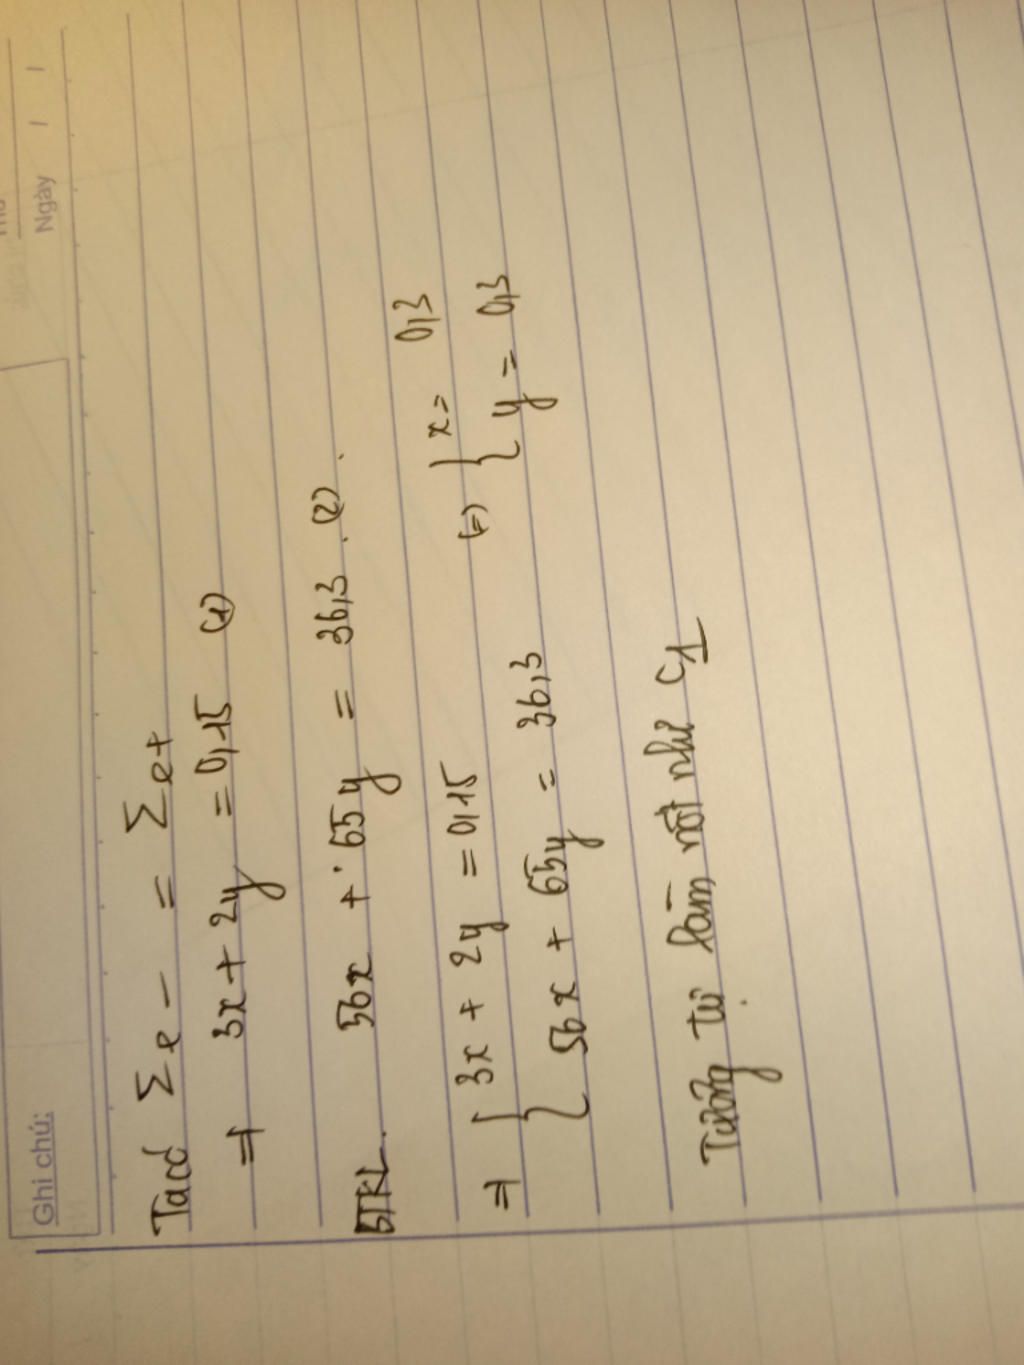 Ghi chú:
Ngày / /
Ta có Σe- = Σe+
⇒ 3x + 2y = 0,15 (1)
BTKL. 56x + 65y = 36,3. (2).
⇒ { 3x + 2y = 0,15 (=) { x = 0,3
{ 56x + 65y = 36,3 { y = 0,3
Tương tự làm nốt như C1